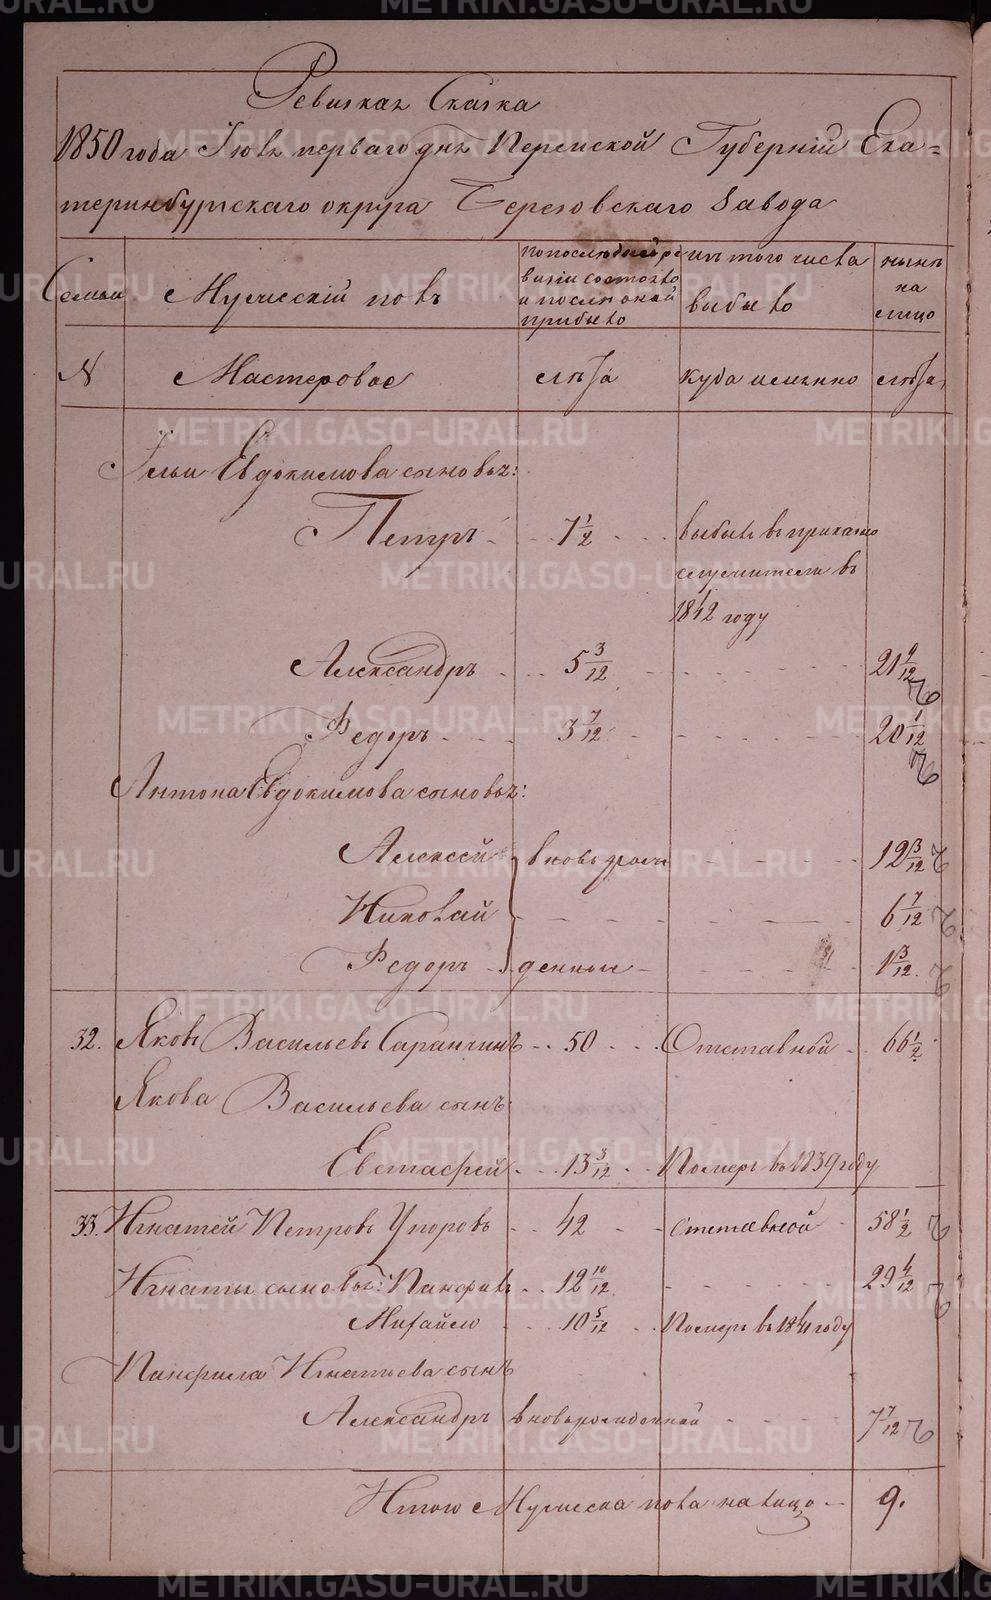 Ревизкая Сказка
1850 года Іюля перваго дня Пермской Губерніи Ека=
теринбургскаго округа Березовскаго Завода
Семьи Мужескій полъ по последней ре- изъ того числа нынѣ
визіи состояло на
и после оной выбыло лицо
прибыло
N Мастеровые лѣта куда именно лѣта
Ильи Евдокимова сыновья:
Петръ 7 1/2 выбылъ въ приказно
служители въ
1842 году
Александръ 5 3/12 21 9/12
Федоръ 3 7/12 20 1/12
Антона Евдокимова сыновья:
Алексей вновь рож 12 3/12
Николай 6 7/12
Федоръ денные 1 3/12
32. Яковъ Васильевъ Саранчинъ 50 Отставной 66 1/2
Якова Васильева сынъ
Евстафей 13 3/12 Померъ въ 1839 году
33. Игнатей Петровъ Упоровъ 42 отставной 58 1/2
Игнатья сыновья: Панфилъ 12 10/12 29 4/12
Михайло 10 5/12 Померъ въ 1841 году
Панфила Игнатьева сынъ
Александръ вновьрожденной 7 7/12
Итого Мужеска пола налицо 9.
METRIKI.GASO-URAL.RU